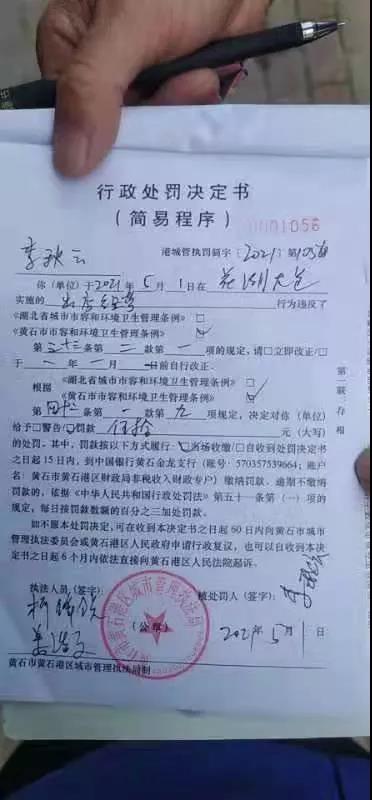 行政处罚决定书
(简易程序)
0001056
港城管执罚简字〔2021〕第1056
李秋云
你(单位)于2021年5月1日在花湖大道
实施的出店经营行为违反了
《湖北省城市市容和环境卫生管理条例》□
《黄石市市容和环境卫生管理条例》☑
第三十三条第二款第一项的规定,请□立即改正/□
于 年 月 日前自行改正。
《湖北省城市市容和环境卫生管理条例》□
根据
《黄石市市容和环境卫生管理条例》☑
第四十二条第一款第九项规定,决定对你(单位)
给予□警告☑罚款伍拾元(大写)
的处罚。其中,罚款按以下方式履行:☑当场收缴/□自收到处罚决定书
之日起15日内,到中国银行黄石金龙支行(账号:570357539664;账户
名:黄石市黄石港区财政局非税收入财政专户)缴纳罚款。逾期不缴纳
罚款的,依据《中华人民共和国行政处罚法》第五十一条第(一)项的
规定,每日按罚款数额的百分之三加处罚款。
如不服本处罚决定,可在收到本决定书之日起60日内向黄石市城市
管理执法委员会或黄石港区人民政府申请行政复议,也可以自收到本决
定书之日起6个月内依法直接向黄石港区人民法院起诉。
执法人员(签字):
被处罚人(签字):李秋云
(公章)
2021年5月1日
黄石市黄石港区城市管理执法局制
第二联 存根
黄石市黄石港区城市管理执法局